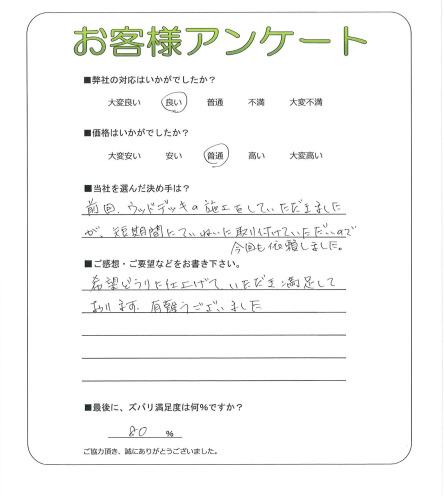 お客様アンケート
■弊社の対応はいかがでしたか？
大変良い 良い 普通 不満 大変不満
■価格はいかがでしたか？
大変安い 安い 普通 高い 大変高い
■当社を選んだ決め手は？
前回、ウッドデッキの施工をしていただきました
が、短期間にていねいに取り付けていただいので
今回も依頼しました。
■ご感想・ご要望などをお書き下さい。
希望どうりに仕上げて いただき満足して
おります。有難うございました
■最後に、ズバリ満足度は何%ですか？
80 %
ご協力頂き、誠にありがとうございました。